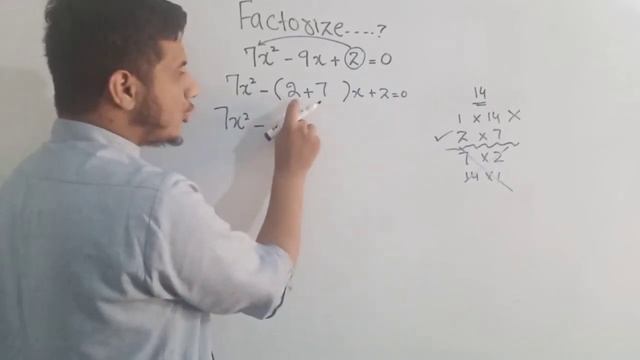 Factorize....?
7x² - 9x + 2 = 0
7x² - (2+7 )x + 2 = 0
7x² -
14
1 x 14 x
✓ 2 x 7
7 x 2
14 x 1